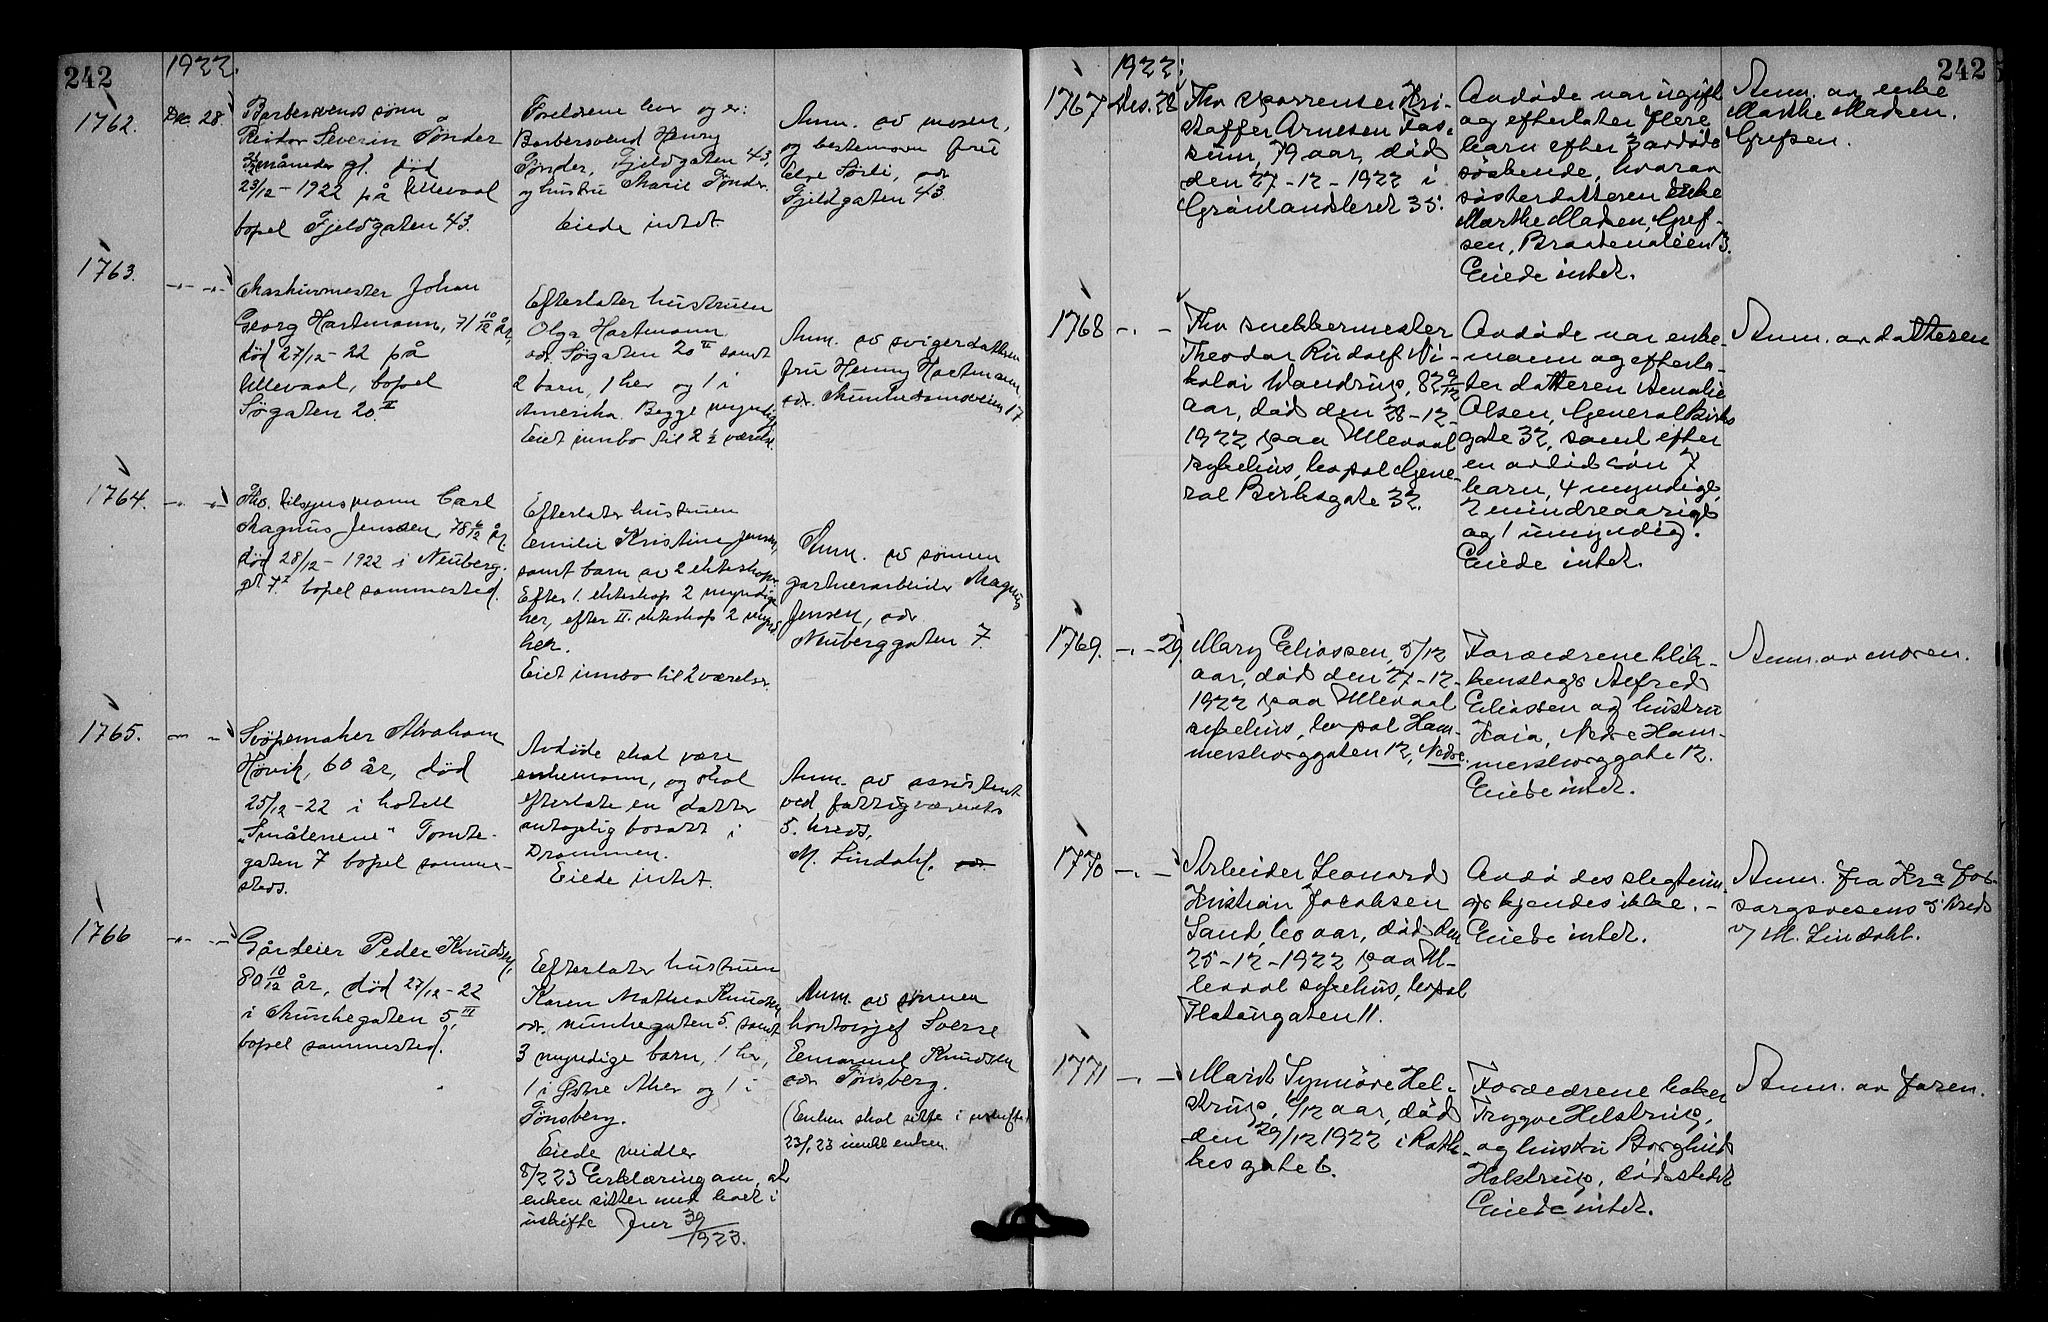 242
1922.
1762.
Dec. 28.
Barbersvend sønn
Reidar Severin Tønder
måneder gl. død
23/12 - 1922 på Ullevaal
bopel Fjeldgaten 43.
Foreldrene lever og er:
Barbersvend Henry
Tønder, Fjeldgaten 43,
og hustru Marie Tønder.
Eiede intet.
Anm. av moren,
og bestemoren fru
Sørli, adr
Fjeldgaten 43.
1763.
-"- -"-
Maskinmester Johan
Georg Hartmann, 71 10/12 år,
død 27/12 - 22 på
Ullevaal, bopel
Søgaten 20 II
Efterlater hustruen
Olga Hartmann
adr. Søgaten 20 II samt
2 barn, 1 her og 1 i
Amerika. Begge myndige
Eiet innbo til 2 ½ værelse.
Anm. av svigerdatteren
fru Henny Hartmann,
adr. 17
1764.
-"- -"-
Fhv. tilsynsmann Carl
Magnus Jensen, 78 6/12 år,
død 28/12 - 1922 i Neuberg.
gt. 7 I bopel sammested.
Efterlater hustruen
Emilie Kristine Jensen,
samt barn av 2 ekteskap.
Efter 1. ekteskap 2 myndige
her, efter II. ekteskap 2 mynd.
her.
Eiet innbo til 2 værelser.
Anm. av sønnen
gartnerarbeider Magnus
Jensen, adr
Neuberggaten 7.
1765.
-"- -"-
Svøpemaker Abraham
Høvik, 60 år, død
25/12 - 22 i hotell
"Smålenene" Tomte-
gaten 7 bopel samme-
steds.
Avdøde skal være
enkemann, og skal
efterlate en datter
antagelig bosatt i
Drammen.
Eiede intet.
Anm. av assistent
ved fattigvæsenets
5. kreds,
M. Lindahl.
1766
-"- -"-
Gårdeier Peder Knudsen,
80 10/12 år, død 27/12 - 22
i Munkegaten 5, III
bopel sammested.
Efterlater hustruen
Karen Mathea Knudsen
adr. Munkegaten 5. samt
3 myndige barn, 1 her,
1 i Østre Aker og 1 i
Tønsberg.
Eiede midler
8/2 23 Erklæring om, at
enken sitter med boet i
uskifte Jnr 39/1923.
Anm. av sønnen
kontorsjef Sverre
Emanuel Knudsen
adr Tønsberg.
(Enken skal sitte i uskifte.
23/1 23 enken
242
1922.
1767
Des. 28
Fhv sporrenser Kri-
stoffer Arnesen Fos-
sum, 79 aar, død
den 27-12-1922 i
Grønlandsleret 35.
Avdøde var ugift
og efterlater flere
barn efter 3 avdøde
søskende, hvorav
søsterdatteren enke
Marthe Madsen, Gref-
sen, Braatenaléen 13.
Eiede intet.
Anm. av enke
Marthe Madsen.
Grefsen.
1768
-"- -
Fhv snekkermester
Theodor Rudolf Ni-
kolai Wandrup, 82 9/12
aar, død den 28-12-
1922 paa Ullevaal
sykehus, bopal Gene-
ral Birksgate 32.
Avdøde var enke-
mann og efterla-
ter datteren Amalie
Olsen, General Birks
gate 32, samt efter
en avdød søn 7
barn, 4 myndige,
2 mindreaarige
og 1 umyndig.
Eiede intet.
Anm. av datteren
1769.
-"- 29.
Mary Eliassen, 5/12
aar, død den 27-12-
1922 paa Ullevaal
sykehus, bopal Ham-
mersborggaten 12, Nedre.
Forældrene blik-
kenslager Alfred
Eliassen og hustru
Kaia, Nedre Ham-
mersborggate 12.
Eiede intet.
Anm. av moren.
1770
-"- -
Arbeider Leonard
Kristian Jacobsen
Sand, 60 aar, død den
25-12-1922 paa Ul-
levaal sykehus, bopal
Platougaten 11.
Avdødes slegtnin-
ger kjendes ikke. -
Eiede intet.
Anm. fra Kra for-
sorgsvesens 5 kreds
v/ M. Lindahl.
1771
-"- -
Marit Synnøve Hel-
strup, 6/12 aar, død
den 29/12 1922 i Rath-
kesgate 6.
Forældrene baker
Trygve Helstrup,
og hustru Borghild
Helstrup, dødsstedet
Eiede intet.
Anm. av faren.